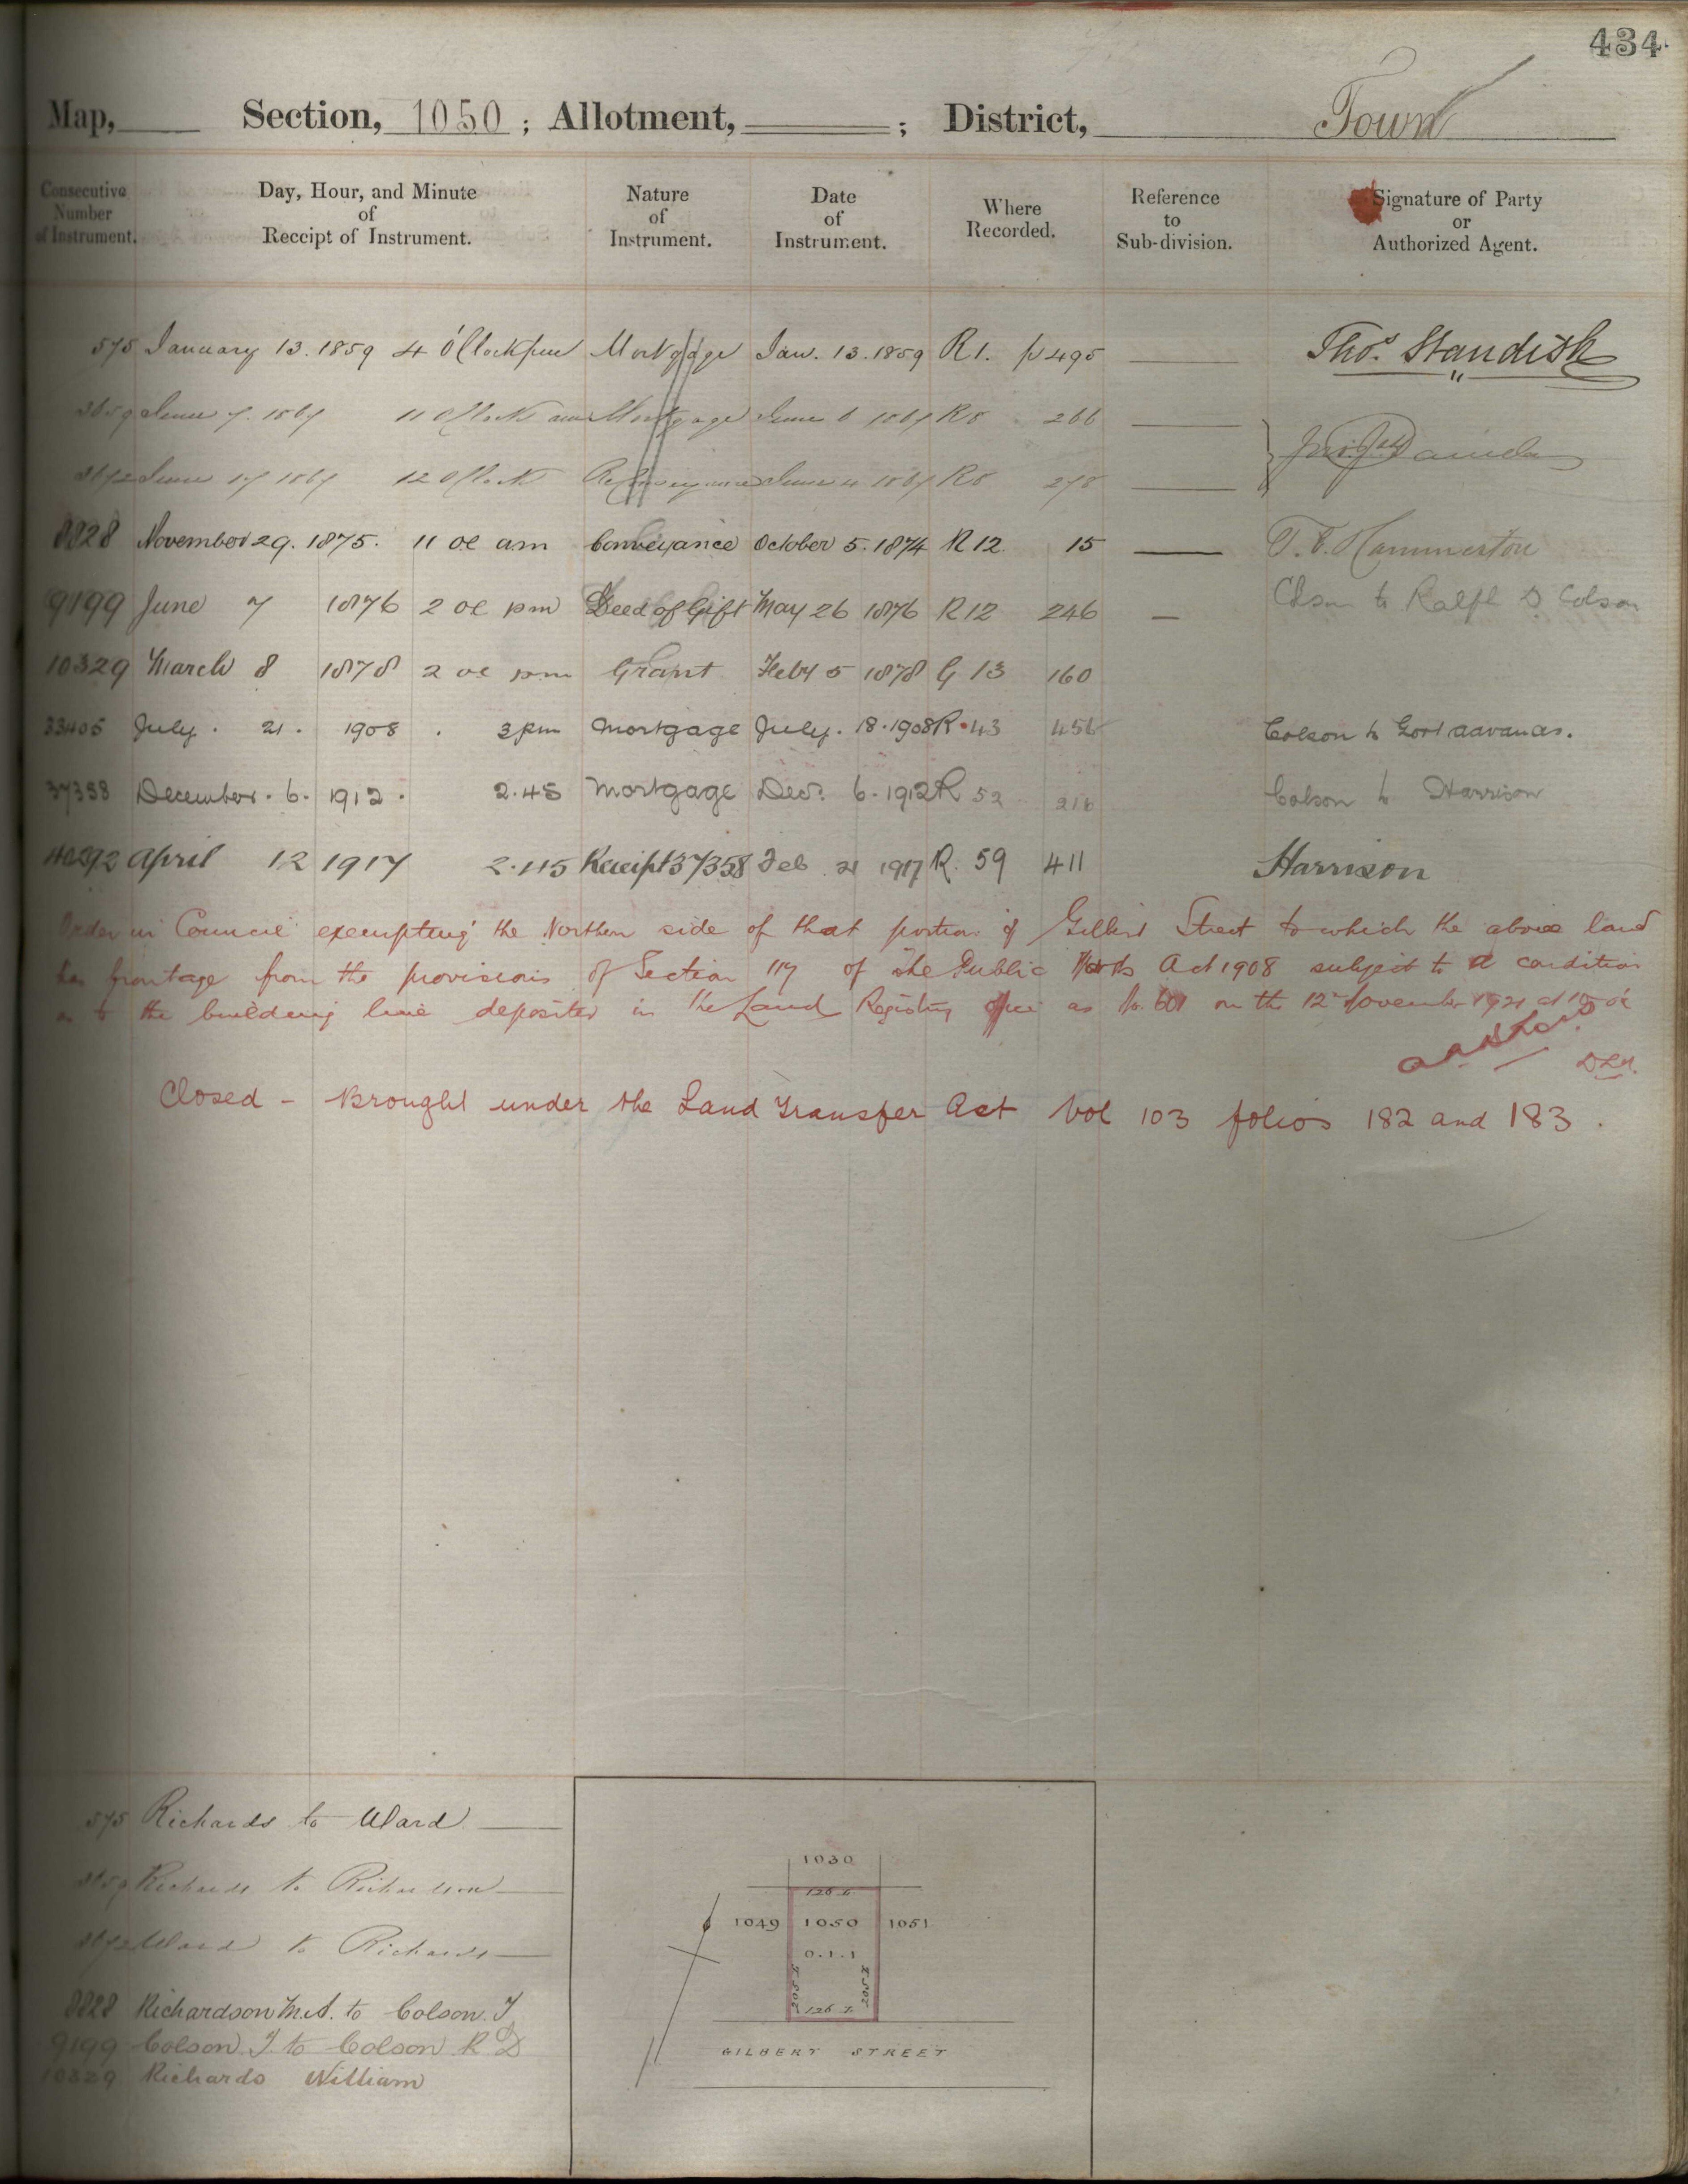 434.
Map, Section, 1050 ; Allotment, ; District, Town
Consecutive Number of Instrument.
Day, Hour, and Minute of Receipt of Instrument.
Nature of Instrument.
Date of Instrument.
Where Recorded.
Reference to Sub-division.
Signature of Party or Authorized Agent.
575 January 13. 1859 4 O'Clock pm Mortgage Jan. 13. 1859 R 1. p 495 Thos. Standish
June 7. 1867 11 O'Clock am Mortgage June 6 1867 R8 266
June 17 1867 12 O'Clock Reconveyance June 1867 R8 278
8828 November 29. 1875. 11 oc am Conveyance October 5. 1874 R 12. 15 T. C. Hammerton
9199 June 7 1876 2 oc pm Deed of Gift May 26 1876 R 12 246 to Ralph D. Colson
10329 March 8 1878 2 oc pm Grant Feby 5 1878 G 13 160
33405 July. 21. 1908. 3 pm Mortgage July. 18. 1908 R. 43 456 Colson to Govt
37358 December. 6. 1912. 2.45 Mortgage Decr. 6. 1912 R 52 216 Colson to Harrison
April 12 1917 2.45 Receipt 37358 Feb 21 1917 R. 59 411 Harrison
Order in Council exempting the Northern side of that portion of Gilbert Street to which the above land
has frontage from the provisions of Section 117 of The Public Works Act 1908 subject to a condition
as to the building line deposited in the Land Registry Office as No. 601 on the 12th November 1921 at 10 oc
DLR.
Closed - Brought under the Land Transfer Act Vol 103 folios 182 and 183.
575 Richards to Ward
Richards to Richardson
Ward to Richards
8828 Richardson M.A. to Colson. T
9199 Colson. T. to Colson. R D
10329 Richards William
1030
126 L
1049 1050 1051
0.1.1
205 L 205 L
126 L
GILBERT STREET